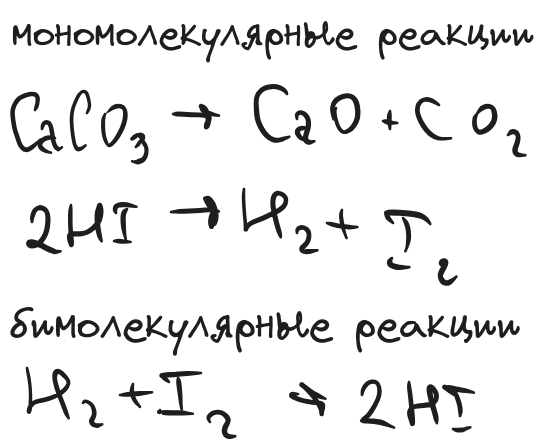 мономолекулярные реакции
CaCO₃ → CaO + CO₂
2HI → H₂ + I₂
бимолекулярные реакции
H₂ + I₂ → 2HI